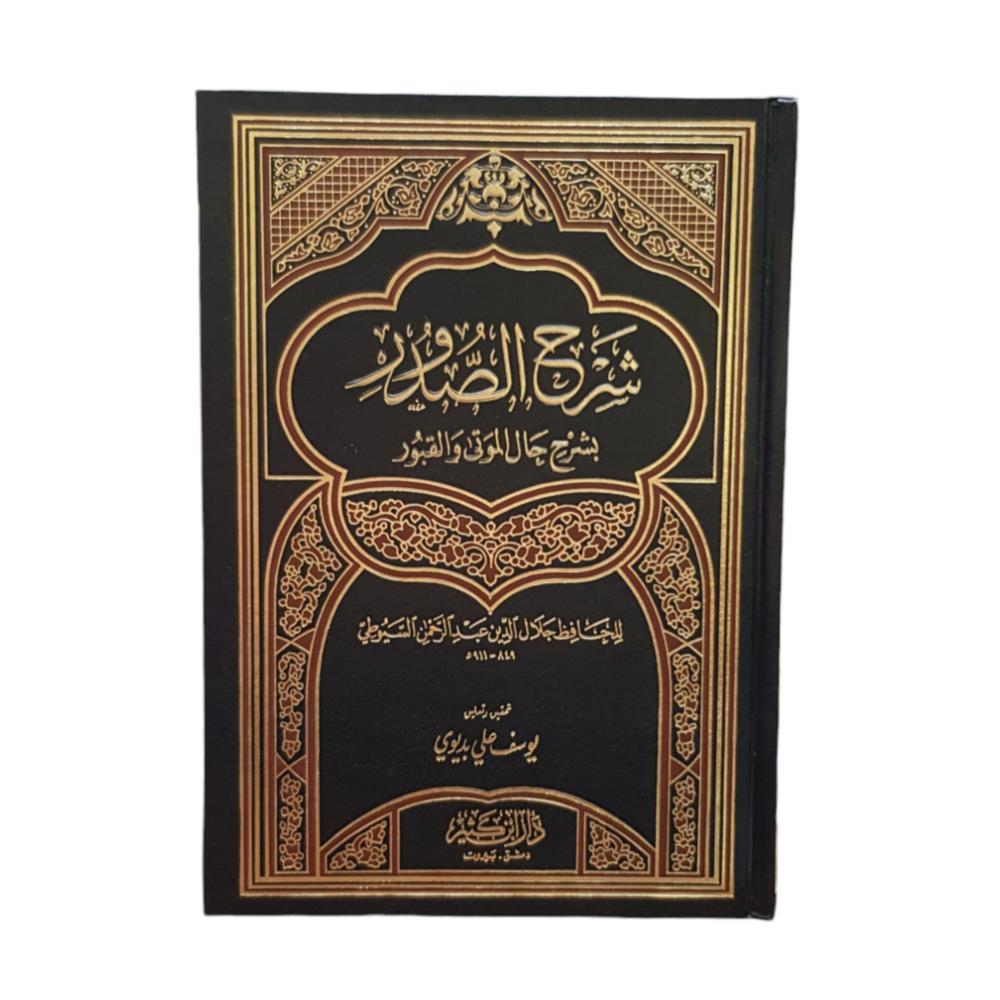 شَرْحُ الصُّدُورِ
بشَرْحِ حَالِ الموَتىٰ وَالقبُور
لِلحَافِظ جَلَالِ الدِّين عَبْدِ الرَّحمٰنِ السُّيُوطِيّ
٨٤٩ - ٩١١ھ
تحقيق وتعليق
يوسف علي بديوي
دَارُ ابْن كَثير
دمشق - بَيروت